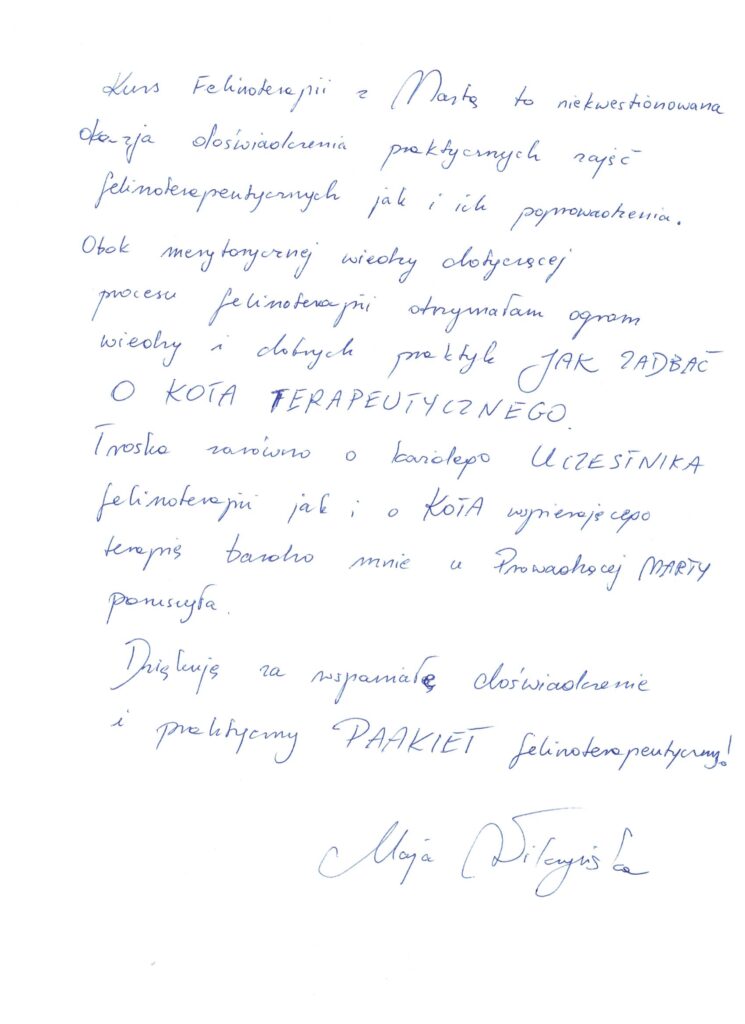 Kurs Felinoterapii z Martą to niekwestionowana
okazja doświadczenia praktycznych zajęć
felinoterapeutycznych jak i ich poprowadzenia.
Obok merytorycznej wiedzy dotyczącej
procesu felinoterapii otrzymałam ogrom
wiedzy i dobrych praktyk JAK ZADBAĆ
O KOTA TERAPEUTYCZNEGO.
Troska zarówno o każdego UCZESTNIKA
felinoterapii jak i o KOTA wspierającego
terapię bardzo mnie u Prowadzącej MARTY
poruszyła.
Dziękuję za wspaniałe doświadczenie
i praktyczny PAAKIET felinoterapeutyczny!
Maja